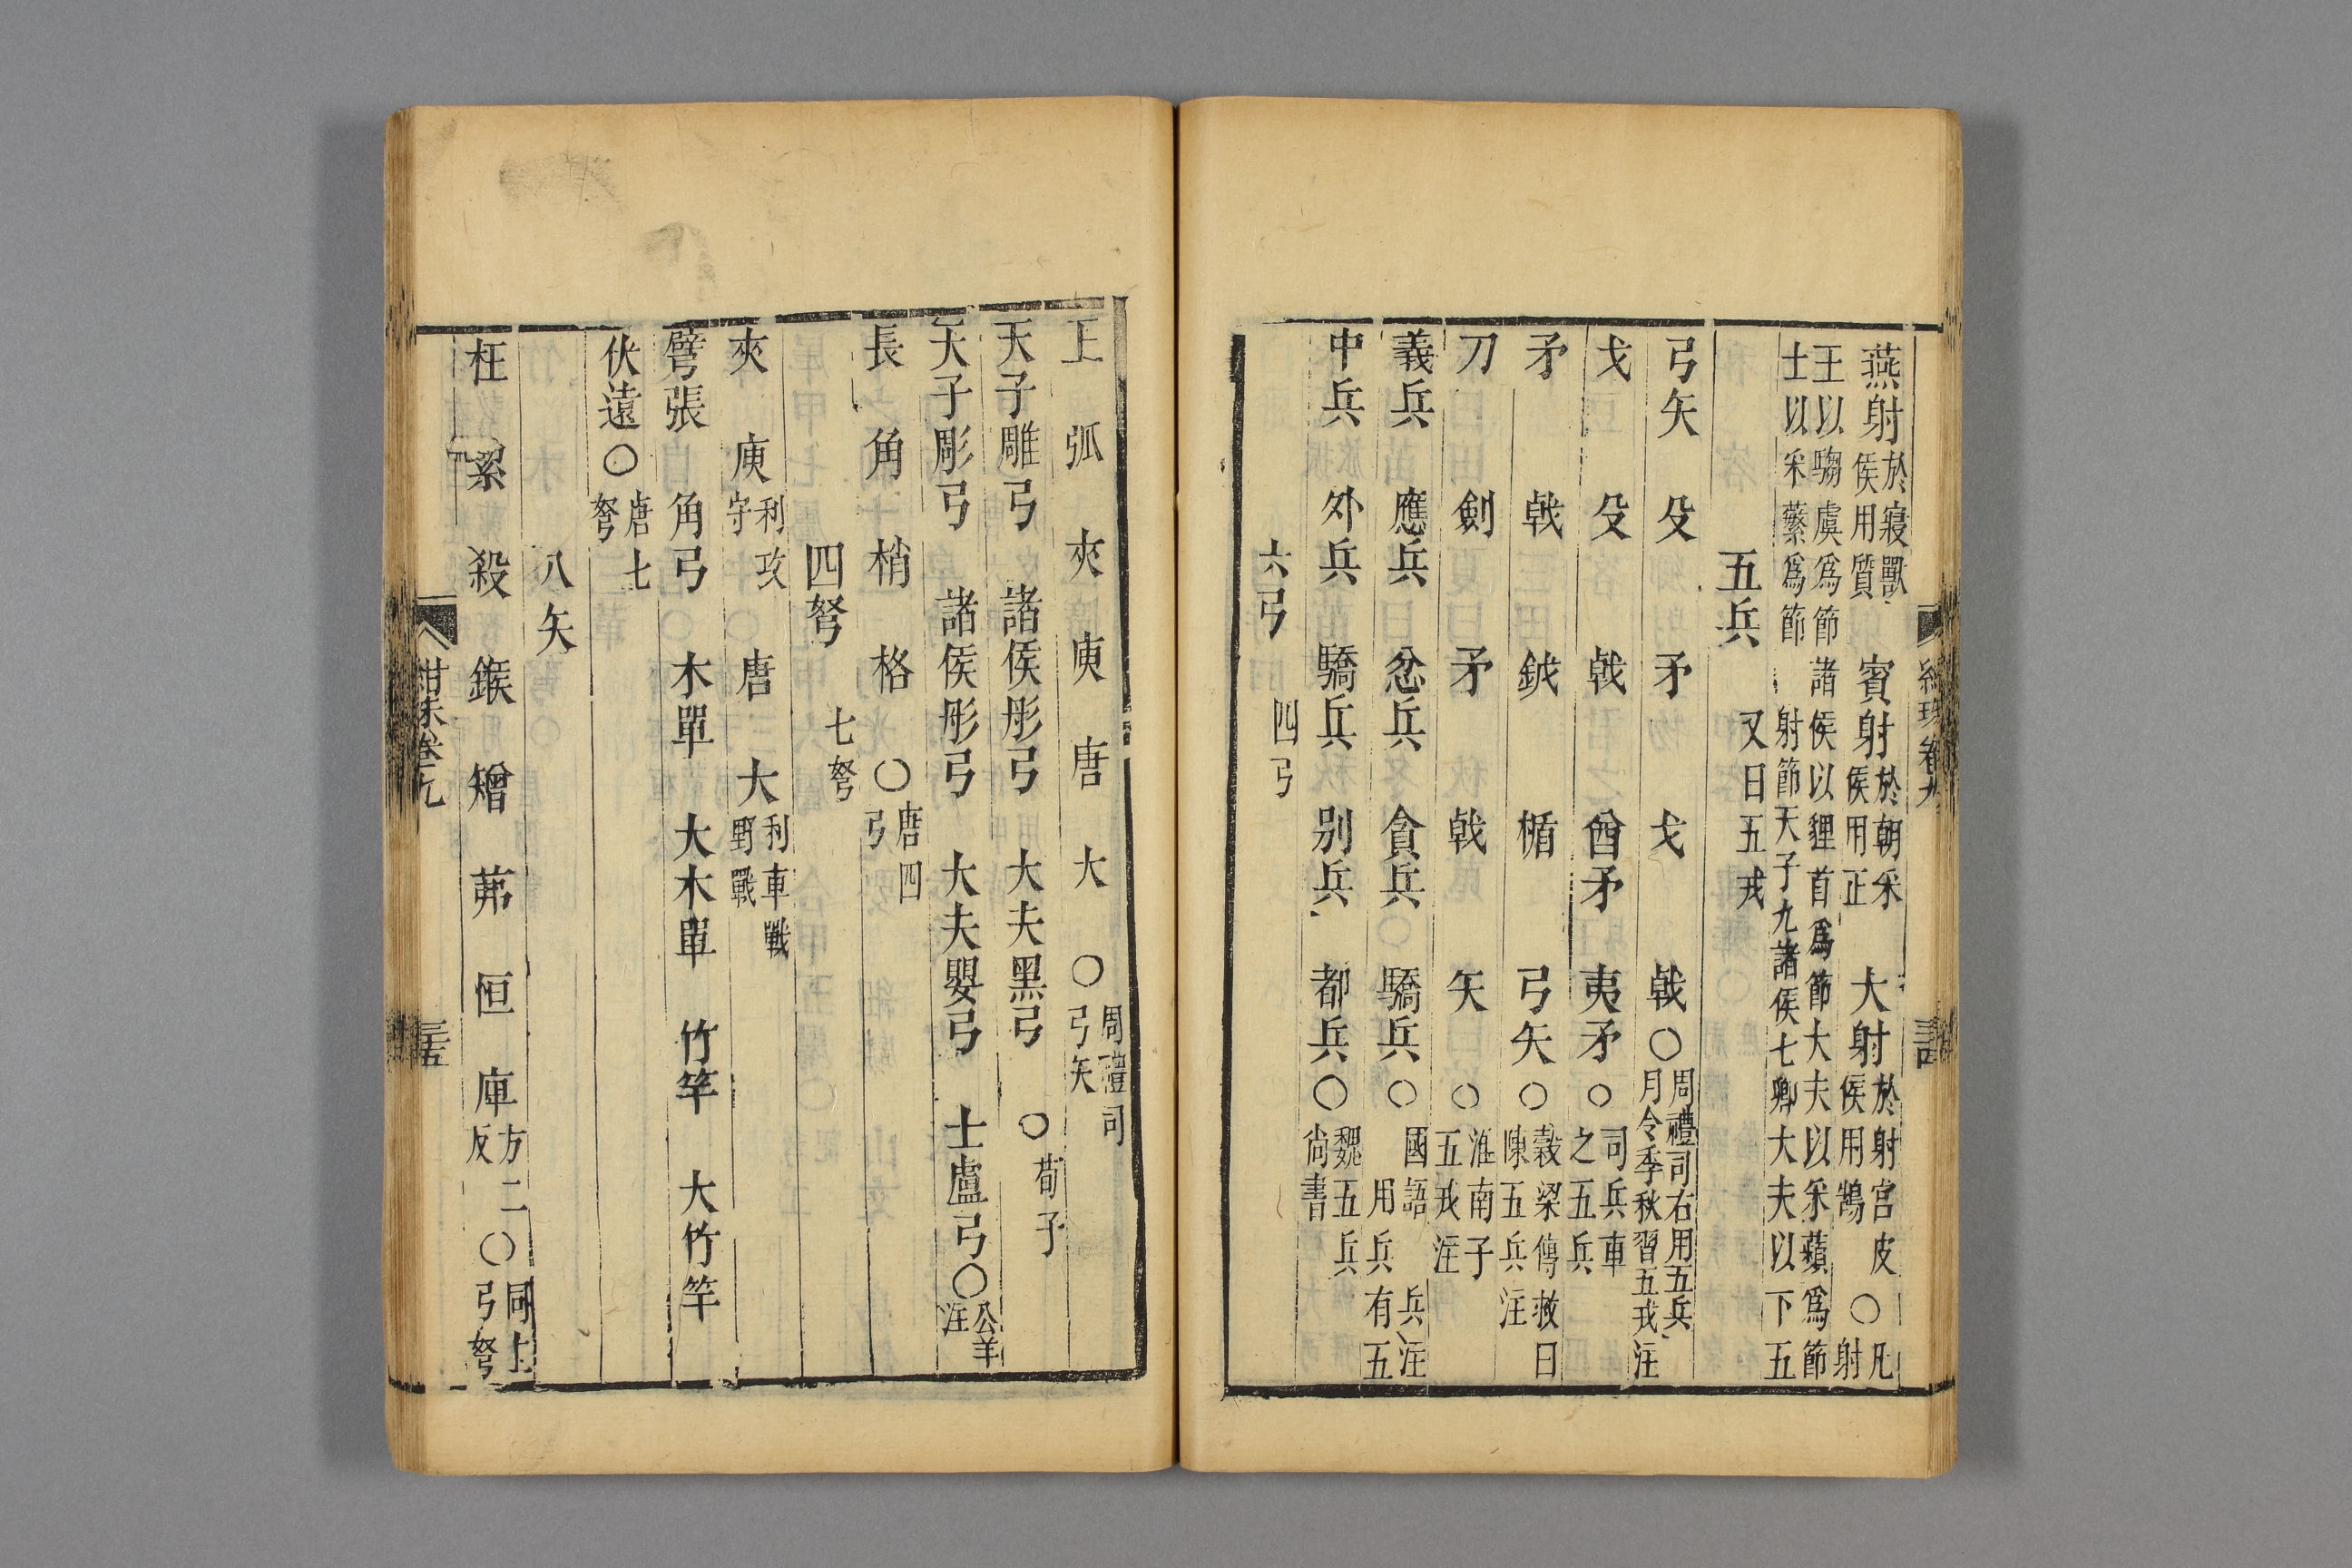 燕射於寢獸侯用質　賓射於朝采侯用正　大射於射宮皮侯用鵠○凡射
王以騶虞爲節諸侯以貍首爲節大夫以采蘋爲節
士以采蘩爲節　射節天子九諸侯七卿大夫以下五
五兵　又曰五戎
弓矢　殳　矛　戈　戟○周禮司右用五兵月令季秋習五戎注
戈　殳　戟　酋矛　夷矛○司兵車之五兵
矛　戟　鉞　楯　弓矢○穀梁傳救日陳五兵注
刀　劍　矛　戟　矢○淮南子五戎注
義兵　應兵　忿兵　貪兵　驕兵○國語兵注用兵有五
中兵　外兵　驕兵　别兵　都兵○魏五兵尚書
六弓　四弓
王　弧　夾　庾　唐　大○周禮司弓矢
天子雕弓　諸侯彤弓　大夫黑弓○荀子
天子彫弓　諸侯彤弓　大夫嬰弓　士盧弓○公羊注
長　角　梢　格○唐四弓
四弩　七弩
夾　庾利攻守　唐　大利車戰野戰
擘張　角弓　木單　大木單　竹竿　大竹竿
伏遠○唐七弩
八矢
枉　絜　殺　鍭　矰　茀　恒　庳方二反○同上弓弩
紺珠卷九